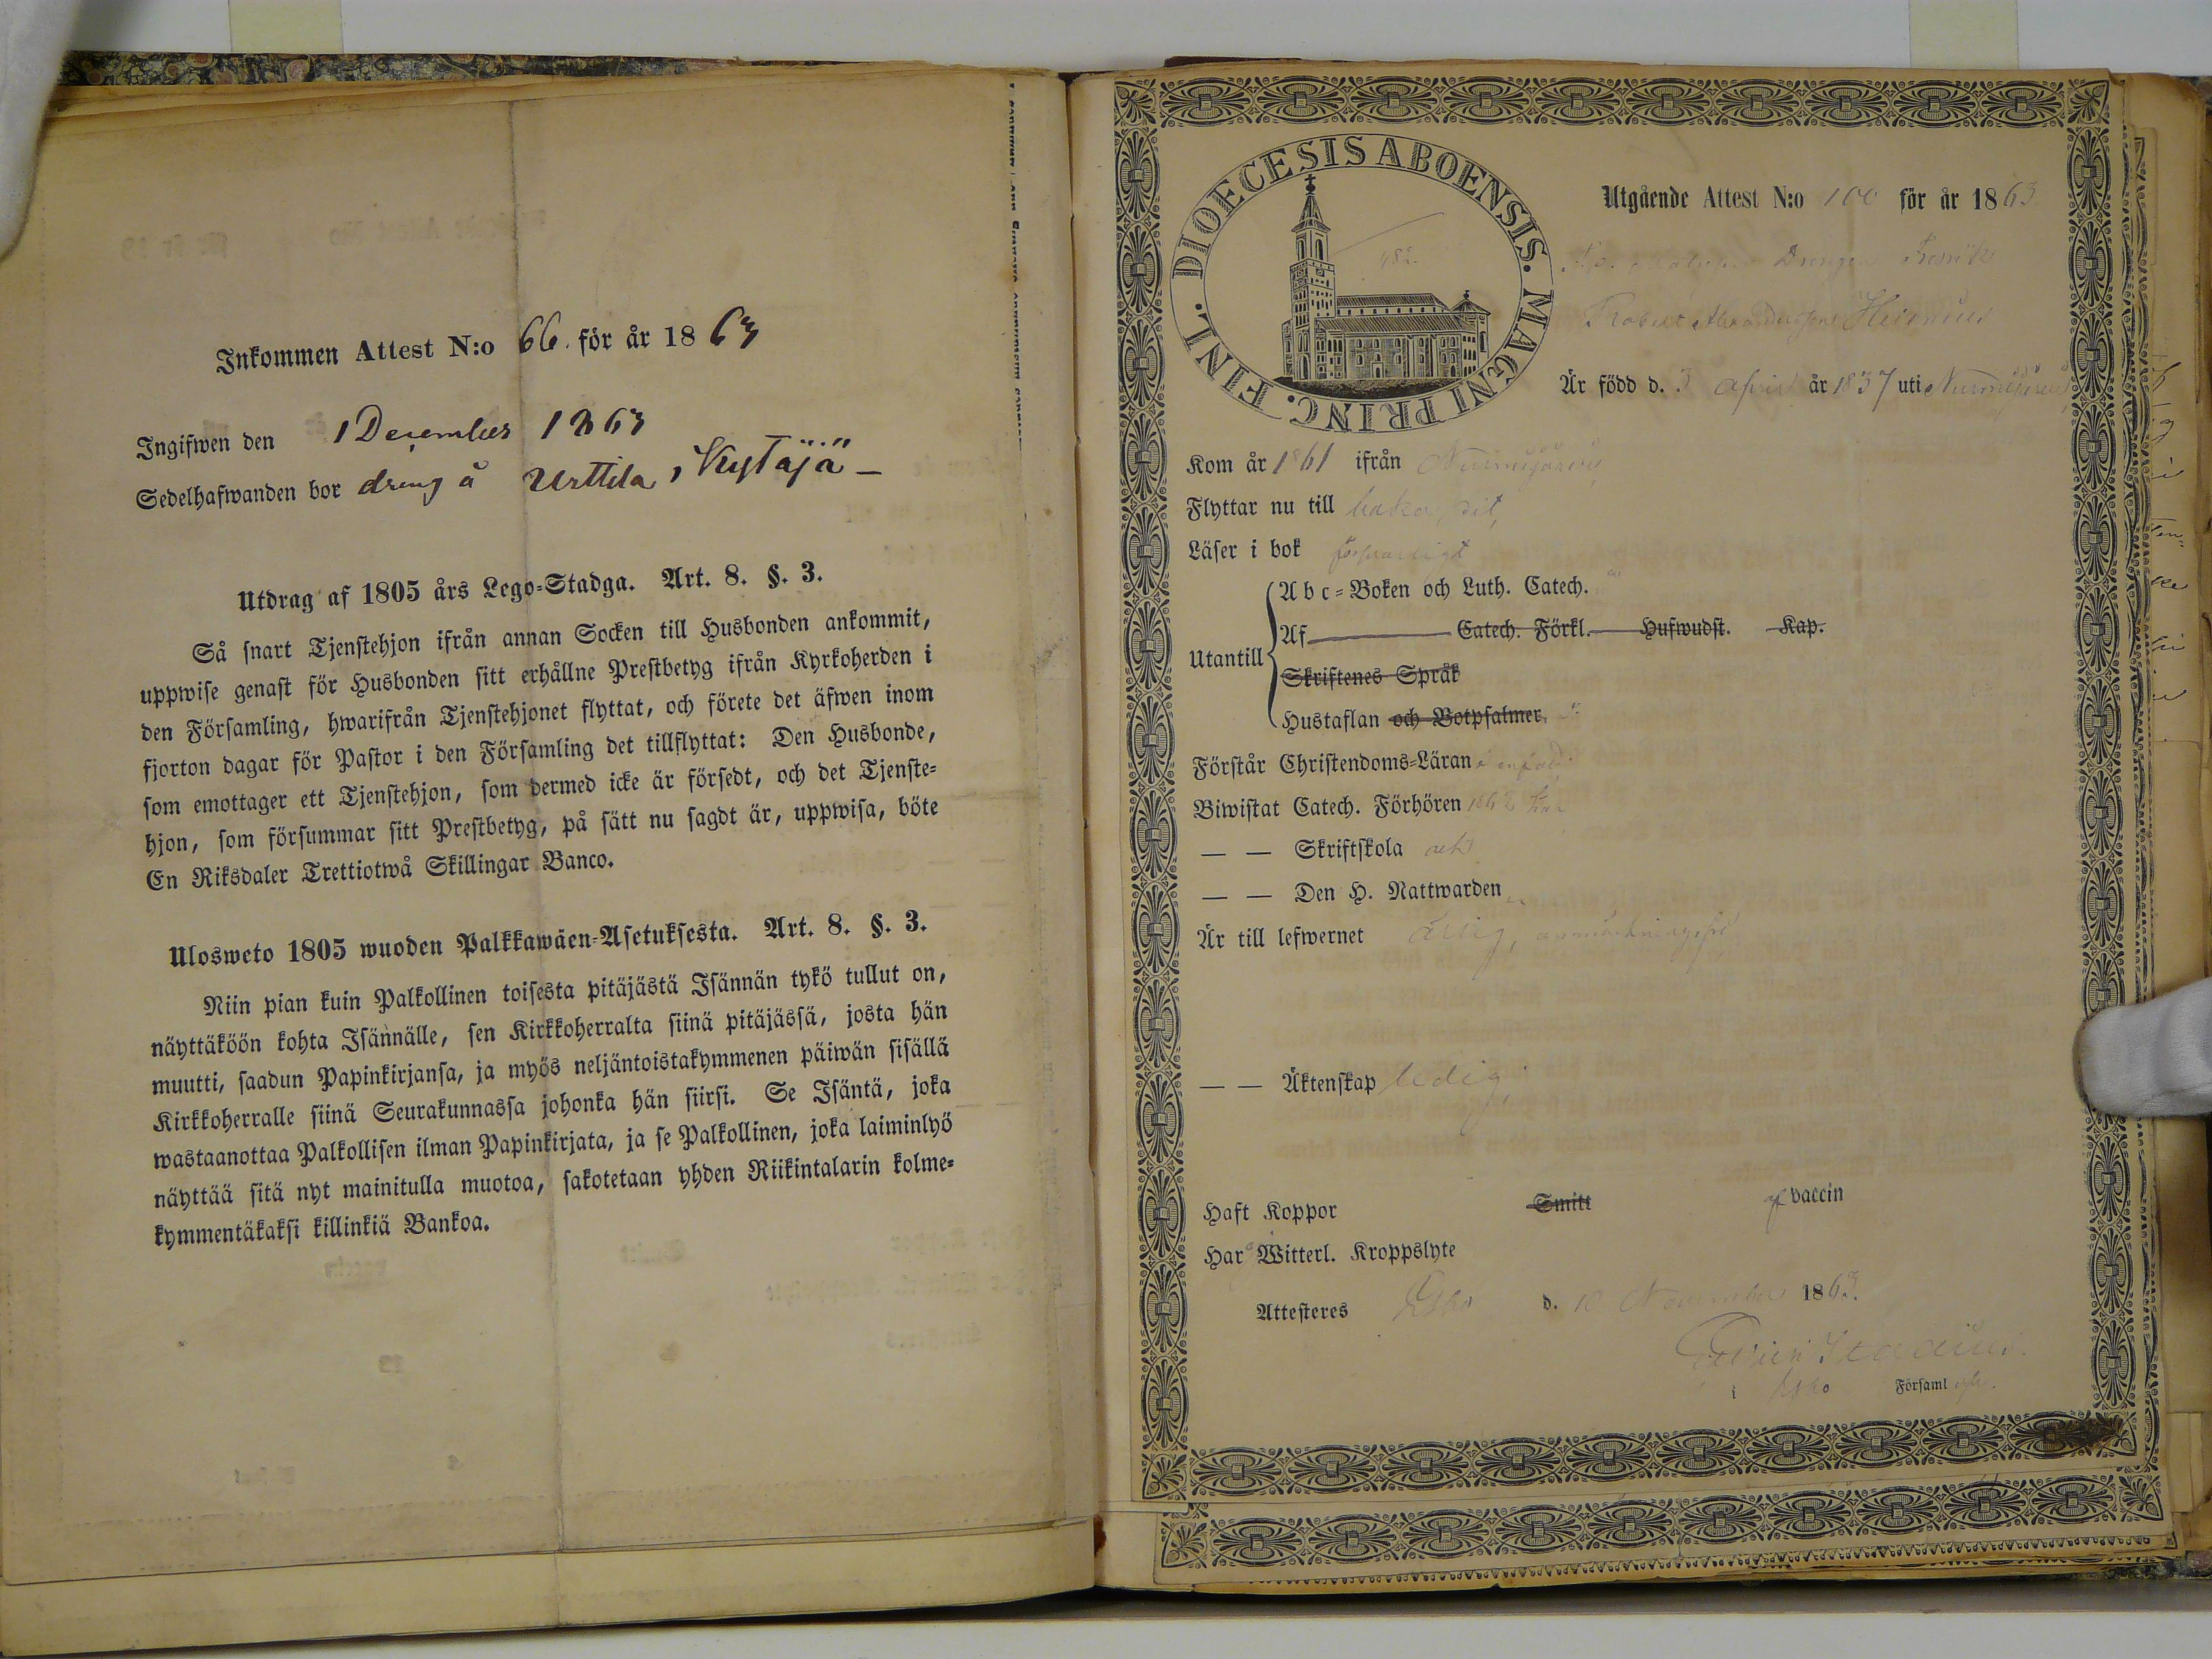 Inkommen Attest N:o 66. för år 1863
Ingifwen den 1 December 1863
Sedelhafwanden bor dreng å Urttila, Kytäjä –
Utdrag af 1805 års Lego-Stadga. Art. 8. §. 3.
Så snart Tjenstehjon ifrån annan Socken till Husbonden ankommit,
uppwise genast för Husbonden sitt erhållne Prestbetyg ifrån Kyrkoherden i
den Församling, hwarifrån Tjenstehjonet flyttat, och förete det äfwen inom
fjorton dagar för Pastor i den Församling det tillflyttat: Den Husbonde,
som emottager ett Tjenstehjon, som dermed icke är försedt, och det Tjenste-
hjon, som försummar sitt Prestbetyg, på sätt nu sagdt är, uppwisa, böte
En Riksdaler Trettiotwå Skillingar Banco.
Ulosweto 1805 wuoden Palkkawäen-Asetuksesta. Art. 8. §. 3.
Niin pian kuin Palkollinen toisesta pitäjästä Isännän tykö tullut on,
näyttäköön kohta Isännälle, sen Kirkkoherralta siinä pitäjässä, josta hän
muutti, saadun Papinkirjansa, ja myös neljäntoistakymmenen päiwän sisällä
Kirkkoherralle siinä Seurakunnassa johonka hän siirsi. Se Isäntä, joka
wastaanottaa Palkollisen ilman Papinkirjata, ja se Palkollinen, joka laiminlyö
näyttää sitä nyt mainitulla muotoa, sakotetaan yhden Riikintalarin kolme-
kymmentäkaksi killinkiä Bankoa.
DIOECESIS ABOENSIS. MAGNI PRINC. FINL.
Utgående Attest N:o 100 för år 1863
Drengen
Robert Alexandersson
Är född d. 3 April år 1837 uti Nurmijärvi
Kom år 1861 ifrån Nurmijärvi
Flyttar nu till
Läser i bok försvarligt
Abc-Boken och Luth. Catech.
Af Catech. Förkl. Hufwudst. Kap.
Utantill
Skriftenes Språk
Hustaflan och Botpsalmer.
Förstår Christendoms-Läran
Biwistat Catech. Förhören
— — Skriftskola och
— — Den H. Nattwarden
Är till lefwernet ärlig,
— — Äktenskap ledig
Haft Koppor Smitt af vaccin
Har Witterl. Kroppslyte
Attesteres Esbo d. 10 November 1863.
i Esbo Församl